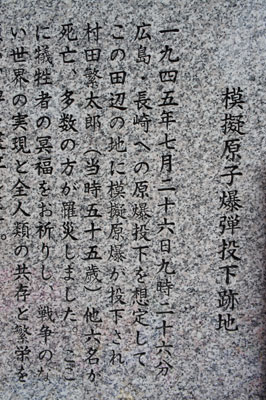 模擬原子爆弾投下跡地
一九四五年七月二十六日九時二十六分
広島・長崎への原爆投下を想定して
この田辺の地に模擬原爆が投下され
村田繁太郎(当時五十五歳)他六名が
死亡、多数の方が罹災しました。ここ
に犠牲者の冥福をお祈りし、戦争のな
い世界の実現と全人類の共存と繁栄を